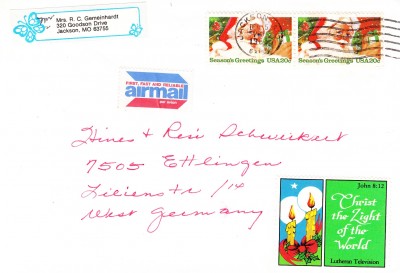 Mrs. R. C. Gemeinhardt
320 Goodson Drive
Jackson, MO 63755
JACKSON
Season's Greetings USA20c
Season's Greetings USA20c
FIRST, FAST AND RELIABLE
airmail
Hines + Resi Schweickert
7505 Ettlingen
Lilienstr /14
West Germany
John 8:12
Christ
the Light
of the
World
Lutheran Television